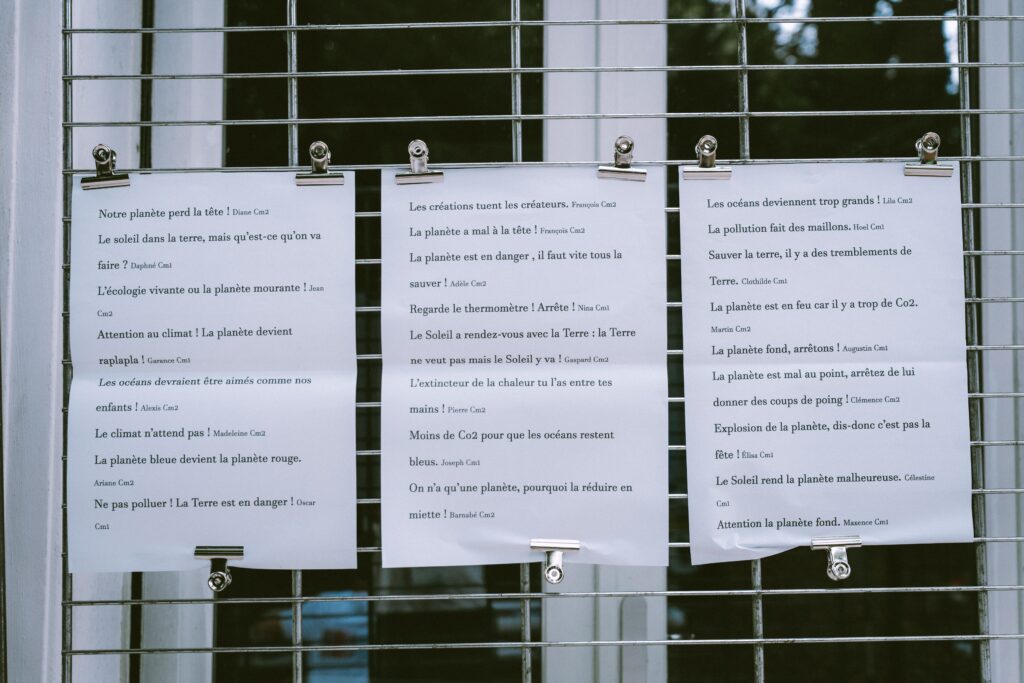 Notre planète perd la tête ! Diane Cm2
Le soleil dans la terre, mais qu'est-ce qu'on va
faire ? Daphné Cm1
L'écologie vivante ou la planète mourante ! Jean
Cm2
Attention au climat ! La planète devient
raplapla ! Garance Cm1
Les océans devraient être aimés comme nos
enfants ! Alexis Cm2
Le climat n'attend pas ! Madeleine Cm2
La planète bleue devient la planète rouge.
Ariane Cm2
Ne pas polluer ! La Terre est en danger ! Oscar
Cm1
Les créations tuent les créateurs. François Cm2
La planète a mal à la tête ! François Cm2
La planète est en danger , il faut vite tous la
sauver ! Adèle Cm2
Regarde le thermomètre ! Arrête ! Nina Cm1
Le Soleil a rendez-vous avec la Terre : la Terre
ne veut pas mais le Soleil y va ! Gaspard Cm2
L'extincteur de la chaleur tu l'as entre tes
mains ! Pierre Cm2
Moins de Co2 pour que les océans restent
bleus. Joseph Cm1
On n'a qu'une planète, pourquoi la réduire en
miette ! Barnabé Cm2
Les océans deviennent trop grands ! Lila Cm2
La pollution fait des maillons. Hoel Cm1
Sauver la terre, il y a des tremblements de
Terre. Clothilde Cm1
La planète est en feu car il y a trop de Co2.
Martin Cm2
La planète fond, arrêtons ! Augustin Cm1
La planète est mal au point, arrêtez de lui
donner des coups de poing ! Clémence Cm2
Explosion de la planète, dis-donc c'est pas la
fête ! Élisa Cm1
Le Soleil rend la planète malheureuse. Célestine
Cm1
Attention la planète fond. Maxence Cm1